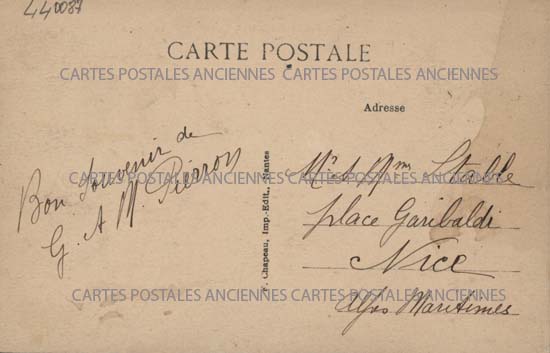 440087
CARTE POSTALE
CARTES POSTALES ANCIENNES CARTES POSTALES ANCIENNES
Adresse
Bon Souvenir de
G. A M. Pierron
V. Chapeau, Imp.-Edit., Nantes
Mr et Mme Stable
CARTES POSTALES ANCIENNES CARTES POSTALES ANCIENNES
place Garibaldi
Nice
CARTES POSTALES ANCIENNES CARTES POSTALES ANCIENNES
Alpes Maritimes